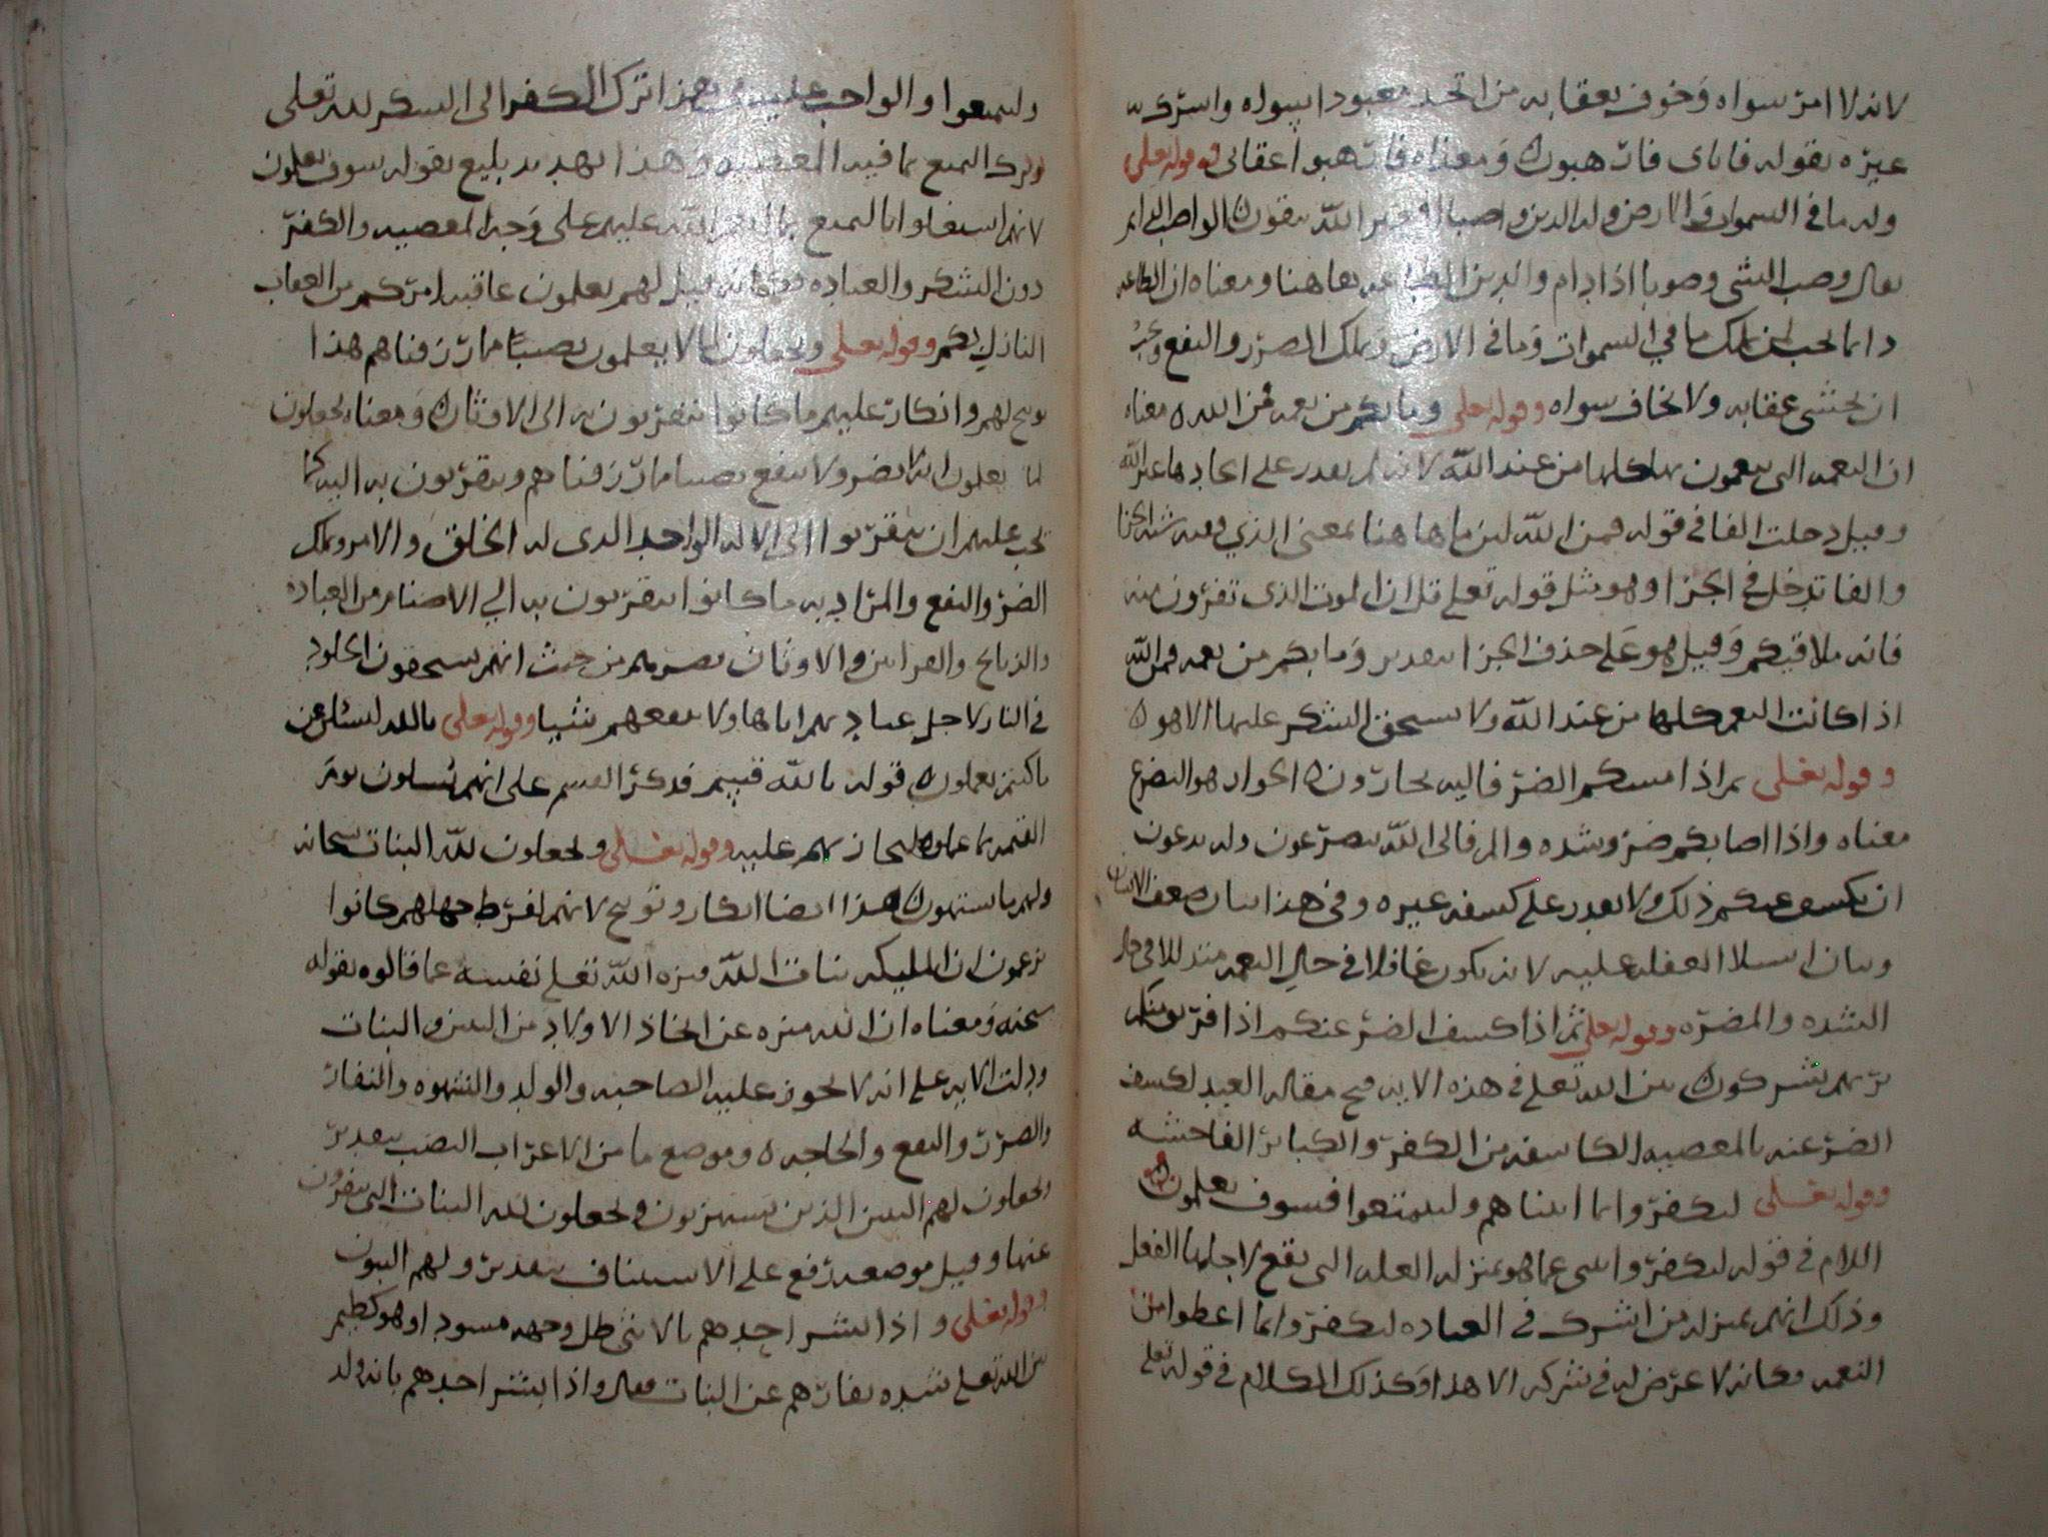 لانه لا امر سواه وخوف بعقابه من اتخذ معبودا سواه واشرك به
غيره بقوله فاياى فارهبون ومعناه فارهبوا عقابى وقوله تعلى
وله ما فى السموات والارض وله الدين واصبا افغير الله تتقون الواصب الدايم
يقال وصب الشى وصوبا اذا دام والدين الطاعه هاهنا ومعناه ان الطاعه
دايما تجب لمن يملك ما في السموات وما فى الارض ويملك الضرر والنفع ويجب
ان يخشى عقابه ولا يخاف سواه وقوله تعلى وما بكم من نعمه فمن الله معناه
ان النعمه التى تنعمون بها كلها من عند الله لانه لم يقدر على ايجادها غير الله
وقيل دخلت الفا فى قوله فمن الله لان ما هاهنا بمعنى الذي وفيه شبه الجزا
والفا تدخل فى الجزا وهو مثل قوله تعلى قل ان الموت الذى تفرون منه
فانه ملاقيكم وقيل هو على حذف الجزا بتقدير وما بكم من نعمه فمن الله
اذا كانت النعم كلها من عند الله ولا يستحق الشكر عليها الا هو
وقوله تعلى ثم اذا مسكم الضر فاليه تجارون الجوار هو التضرع
معناه واذا اصابكم ضر وشده والم فالى الله تتضرعون وله تدعون
ان يكشف عنكم ذلك ولا يقدر على كشفه غيره وفى هذا بيان ضعف الانسان
وبيان استيلا الغفله عليه لانه يكون غافلا فى حال النعمه متذللا فى حال
الشده والمضره وقوله تعلى ثم اذا كشف الضر عنكم اذا فريق منكم
بربهم يشركون بين الله تعلى فى هذه الايه قبح مقاله العبد لكشف
الضر عنه بالمعصيه الكاشفه من الكفر والكباير الفاحشه
وقوله تعلى ليكفروا بما اتيناهم وليتمتعوا فسوف يعلمون
اللام فى قوله ليكفروا انبى عما هو بمنزله العله التى يقع لاجلها الفعل
وذلك انهم بمنزله من اشرك فى العباده ليكفروا بما اعطوا من
النعمه وكانه لا غرض له فى شركه الا هذا وكذلك الكلام فى قوله تعلى
وليتمتعوا والواجب عليهم فى هذا ترك الكفر الى الشكر لله تعلى
وترك التمتع بما فيه المعصيه وهذا تهديد بليغ بقوله سوف تعلمون
لانهم اشتغلوا بالتمتع بما انعم الله عليهم على وجه المعصيه والكفر
دون الشكر والعباده فكانه قيل لهم تعلمون عاقبه امركم من العقاب
النازل بكم وقوله تعلى ويجعلون لما لا يعلمون نصيبا مما رزقناهم هذا
توبيخ لهم وانكار عليهم ما كانوا يتقربون به الى الاوثان ومعناه يجعلون
لما يعلمون انه لا يضر ولا ينفع نصيبا مما رزقناهم ويتقربون به اليه كما
يجب عليهم ان يتقربوا الى الاله الواحد الذى له الخلق والامر ويملك
الضر والنفع والمراد به ما كانوا يتقربون به الي الاصنام من العباده
والذبايح والقرابين والاوثان تضرهم من حيث انهم يستحقون الخلود
فى النار لاجل عبادتهم اياها ولا تنفعهم شيا وقوله تعلى تالله لتسئلن عن
ما كنتم تعملون قوله تالله قسم فذكر القسم على انهم يسلون يوم
القيمه بما عملوه ليجازيهم عليه وقوله تعلى ويجعلون لله البنات سبحانه
ولهم ما يشتهون هذا ايضا انكار وتوبيخ لانهم لفرط جهلهم كانوا
يزعمون ان المليكه بنات الله فنزه الله تعلى نفسه عما قالوه بقوله
سبحنه ومعناه ان الله منزه عن اتخاذ الاولاد من البنين والبنات
ودلت الايه على انه لا يجوز عليه الصاحبه والولد والشهوه والنفار
والضرر والنفع والحاجه وموضع ما من الاعراب النصب بتقدير
يجعلون لهم البنين الذين يشتهون ويجعلون لله البنات التى ينفرون
عنها وقيل موضعه رفع على الاستيناف بتقدير ولهم البنون
وقوله تعلى واذا بشر احدهم بالانثى ظل وجهه مسودا وهو كظيم
بين الله تعلى شده نفارهم عن البنات فقال واذا بشر احدهم بانه ولد